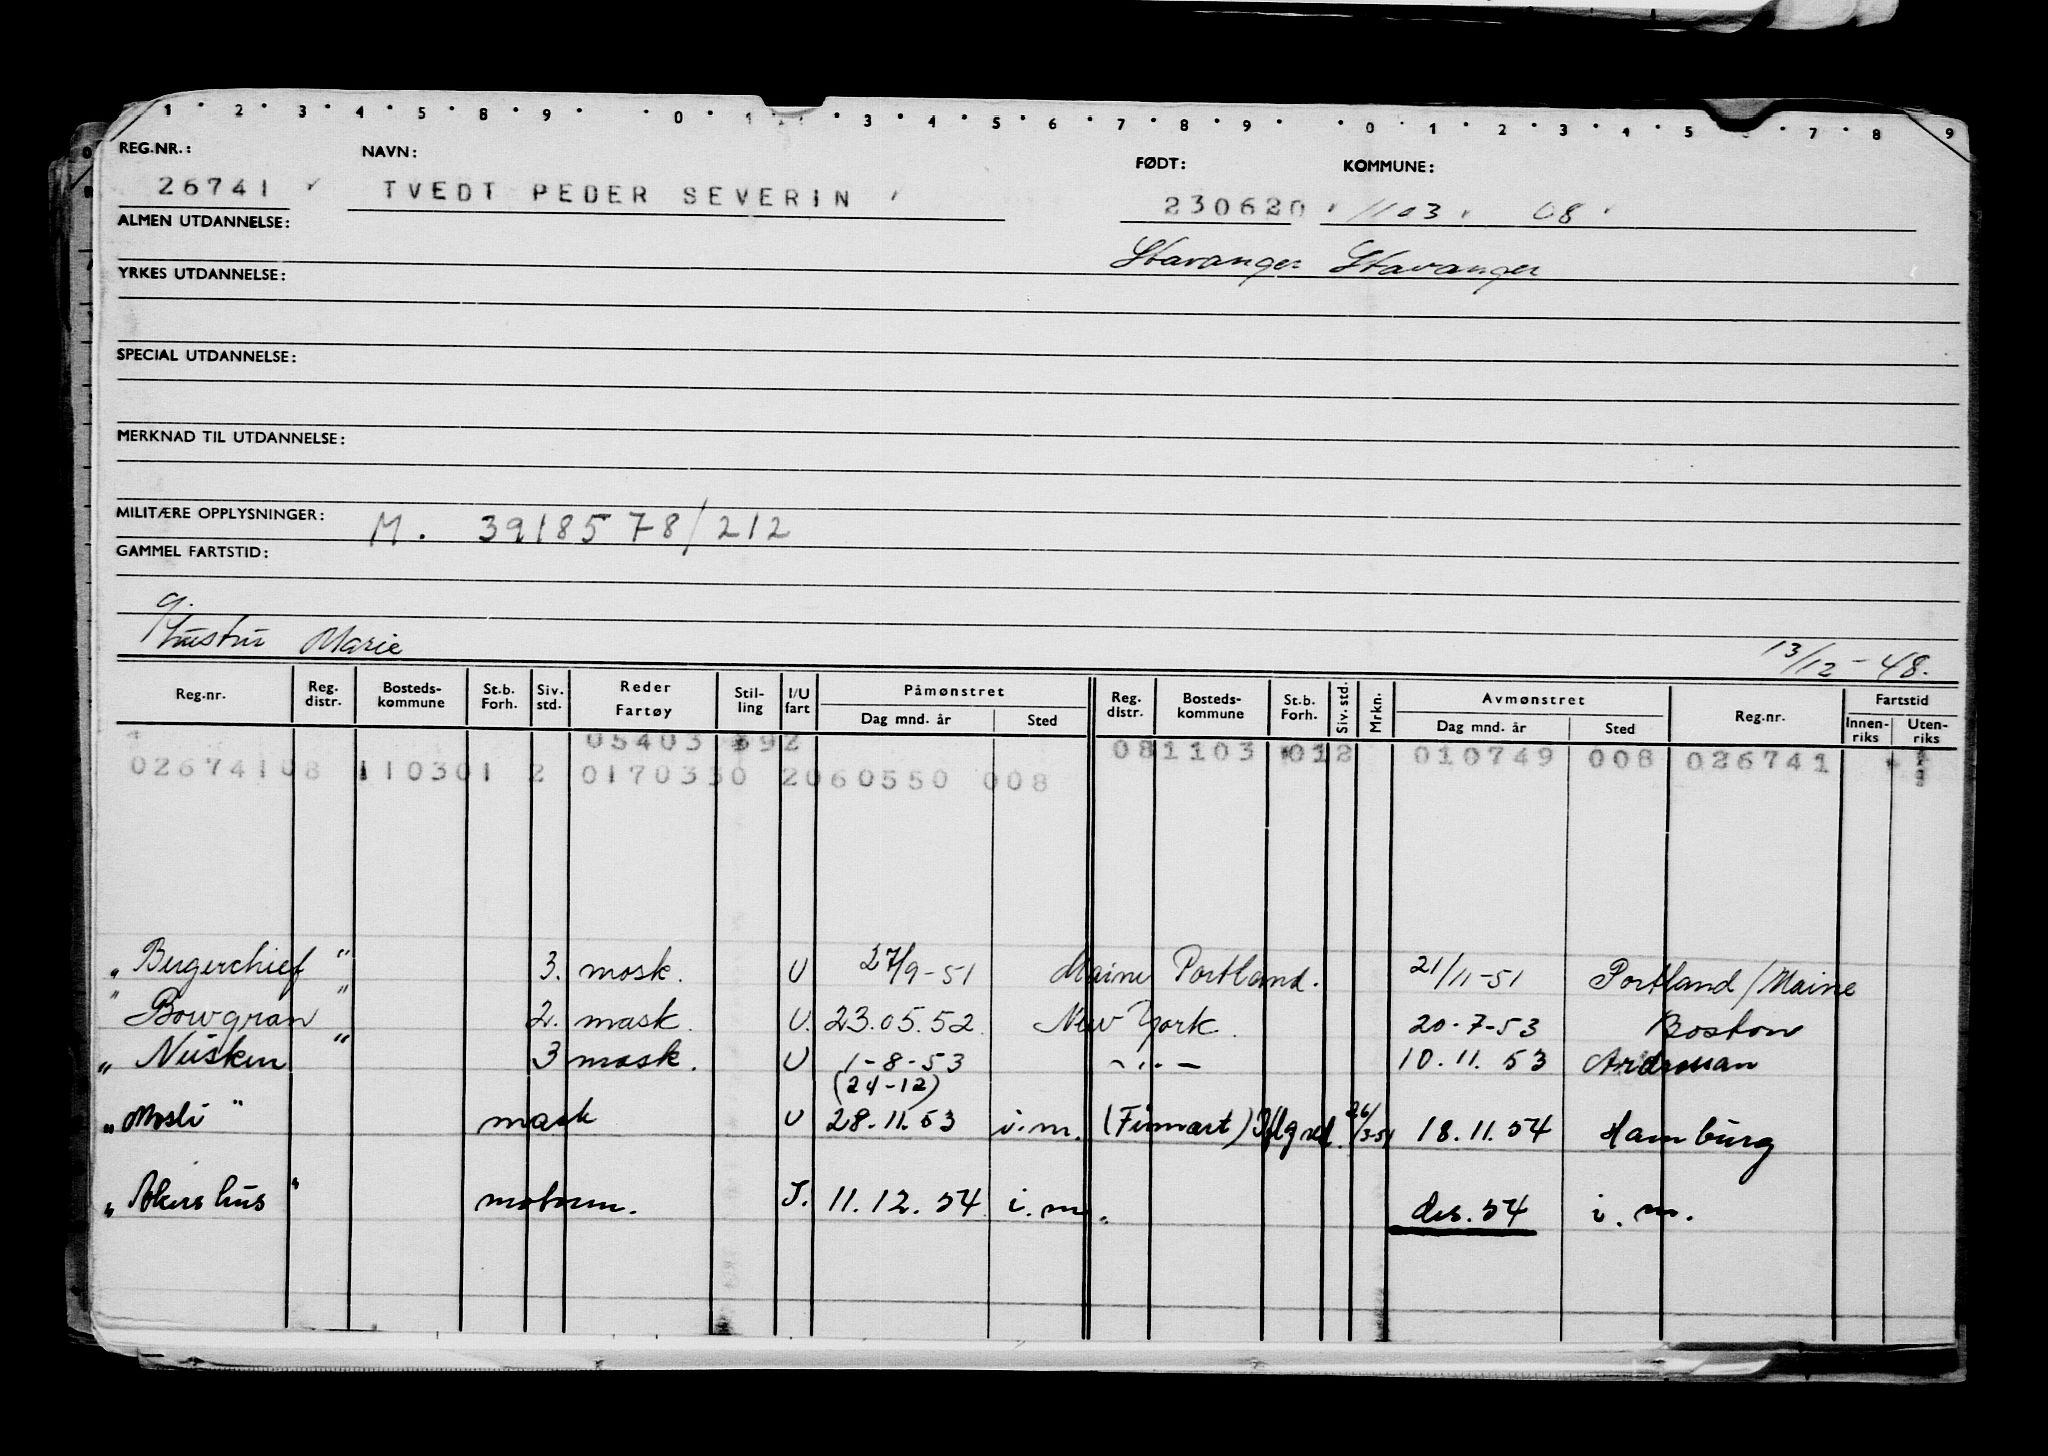 1 2 3 4 5 8 9 0 1 3 4 5 6 7 8 9 0 1 2 3 4 5 7 8 9
REG.NR.: NAVN: FØDT: KOMMUNE:
26741 TVEDT PEDER SEVERIN 230620 1103 08
ALMEN UTDANNELSE: Stavanger Stavanger
YRKES UTDANNELSE:
SPECIAL UTDANNELSE:
MERKNAD TIL UTDANNELSE:
MILITÆRE OPPLYSNINGER: M. 3918578/212
GAMMEL FARTSTID:
g.
hustru Marie 13/12-48.
Reg.nr. Reg. distr. Bosteds-kommune St.b. Forh. Siv. std. Reder Fartøy Stil-ling I/U fart Påmønstret Dag mnd. år Sted Reg. distr. Bosteds-kommune St.b. Forh. Siv. std. Mrkn. Avmønstret Dag mnd. år Sted Reg.nr. Fartstid Innen-riks Uten-riks
05403 392 081103 012 010749 008 026741
02674108 110301 2 0170330 2060550 008
"Bergerchief" 3. mask. U 27/9-51 Maine Portland. 21/11-51 Portland/Maine
"Bowgran" 2. mask. U. 23.05.52 New York. 20-7-53 Boston
"Nüsken" 3 mask. U 1-8-53 -"- 10.11.53 Ardrossan
(24-12)
"Mosli" mask U 28.11.53 i.m. (Finnart) 26/ 18.11.54 Hamburg
"Akershus" motorm. I. 11.12.54 i.m. des. 54 i.m.